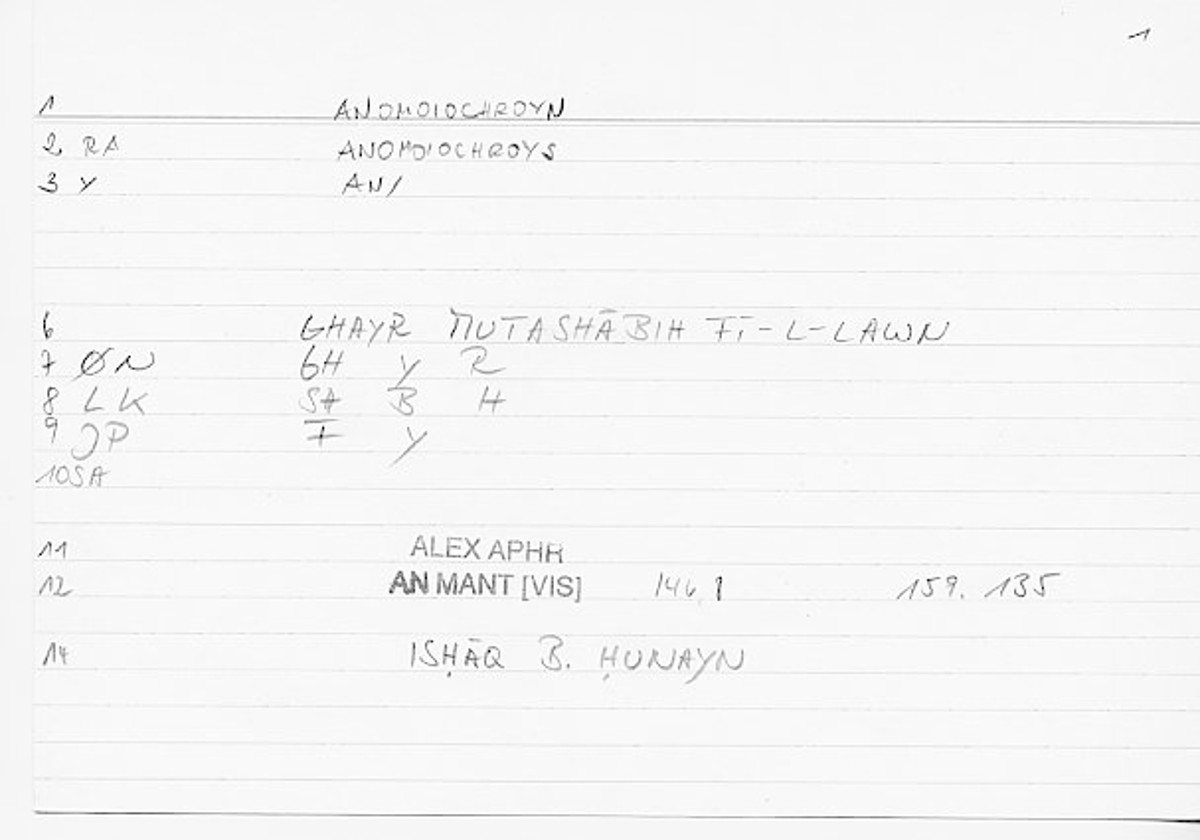 1
1 ANOMOIOCHROYN
2 RA ANOMOIOCHROYS
3 Y AN/
6 GHAYR MUTASHĀBIH FĪ-L-LAWN
7 ØN GH Y R
8 LK S̄H̄ B H
9 JP F Y
10 SA
11 ALEX APHR
12 AN MANT [VIS] 146,1 159. 135
14 ISḤĀQ B. ḤUNAYN